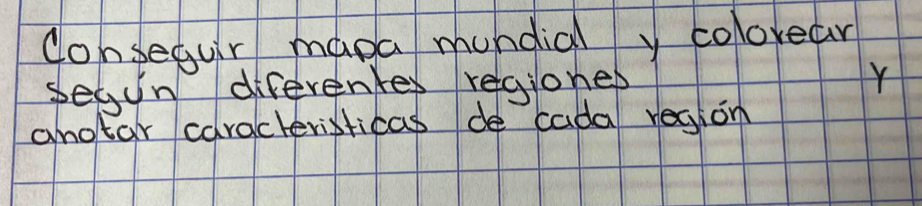 Conseguir mapa mundial y colorear
según diferentes regiones y
anotar caracteristicas de cada región